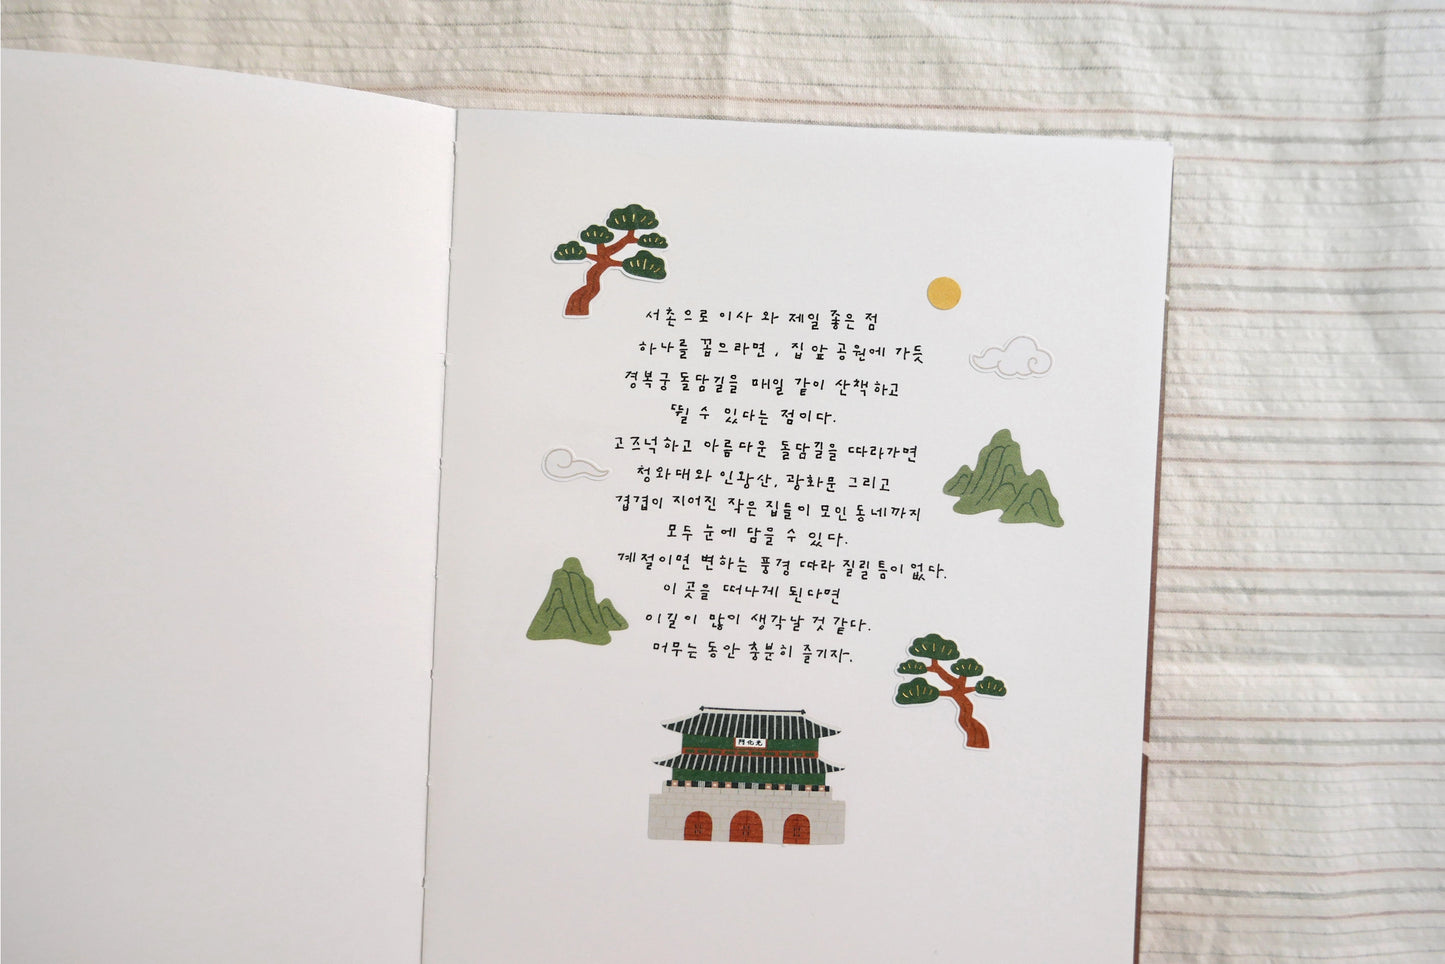 서촌으로 이사 와 제일 좋은 점
하나를 꼽으라면, 집 앞 공원에 가듯
경복궁 돌담길을 매일 같이 산책하고
뛸 수 있다는 점이다.
고즈넉하고 아름다운 돌담길을 따라가면
청와대와 인왕산, 광화문 그리고
겹겹이 지어진 작은 집들이 모인 동네까지
모두 눈에 담을 수 있다.
계절이면 변하는 풍경 따라 질릴 틈이 없다.
이 곳을 떠나게 된다면
이길이 많이 생각날 것 같다.
머무는 동안 충분히 즐기자.
門化光